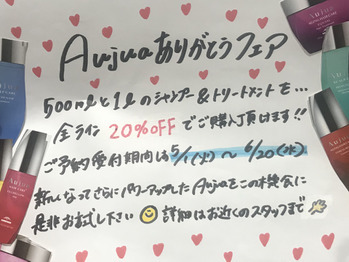 Aujuaありがとうフェア
500mlと1lのシャンプー&トリートメントを...
全ライン 20%OFF でご購入頂けます!!
ご予約受付期間は5/1(火)~6/20(水)
新しくなってさらにパワーアップしたAujuaをこの機会に
是非お試し下さい 詳細はお近くのスタッフまで
Aujua
Aujua
Aujua